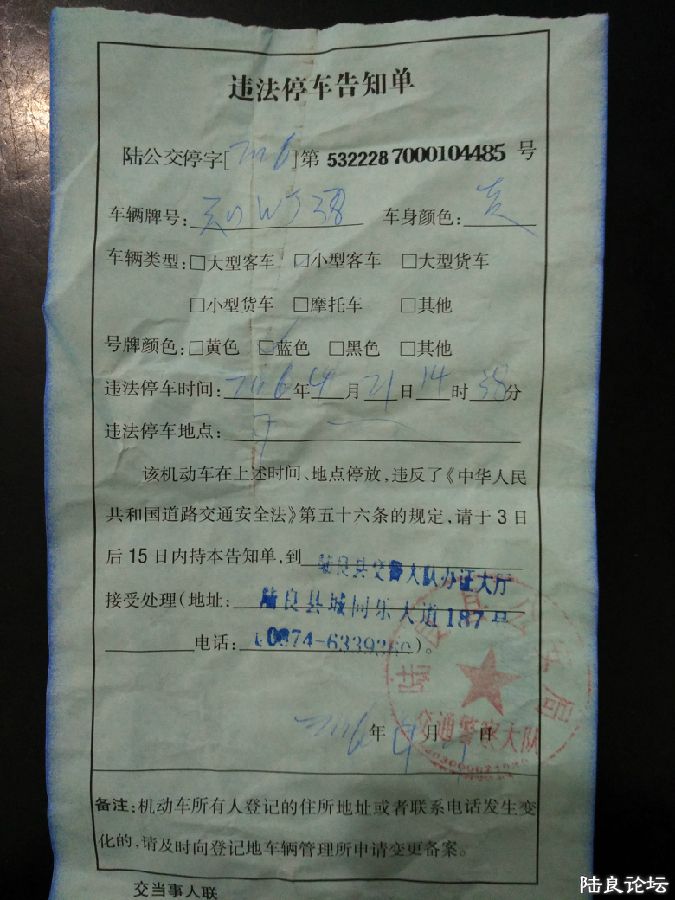 违法停车告知单
陆公交停字[2016]第5322287000104485号
车辆牌号: 车身颜色:
车辆类型:□大型客车 □小型客车 □大型货车
□小型货车 □摩托车 □其他
号牌颜色:□黄色 □蓝色 □黑色 □其他
违法停车时间:2016年4月21日14时38分
违法停车地点:
该机动车在上述时间、地点停放,违反了《中华人民
共和国道路交通安全法》第五十六条的规定,请于3日
后15日内持本告知单,到陆良县交警大队办证大厅
接受处理(地址:陆良县城同乐大道187号
电话:0874-6339360)。
2016年4月21日
陆良县公安局
交通警察大队
备注:机动车所有人登记的住所地址或者联系电话发生变
化的,请及时向登记地车辆管理所申请变更备案。
交当事人联
陆良论坛